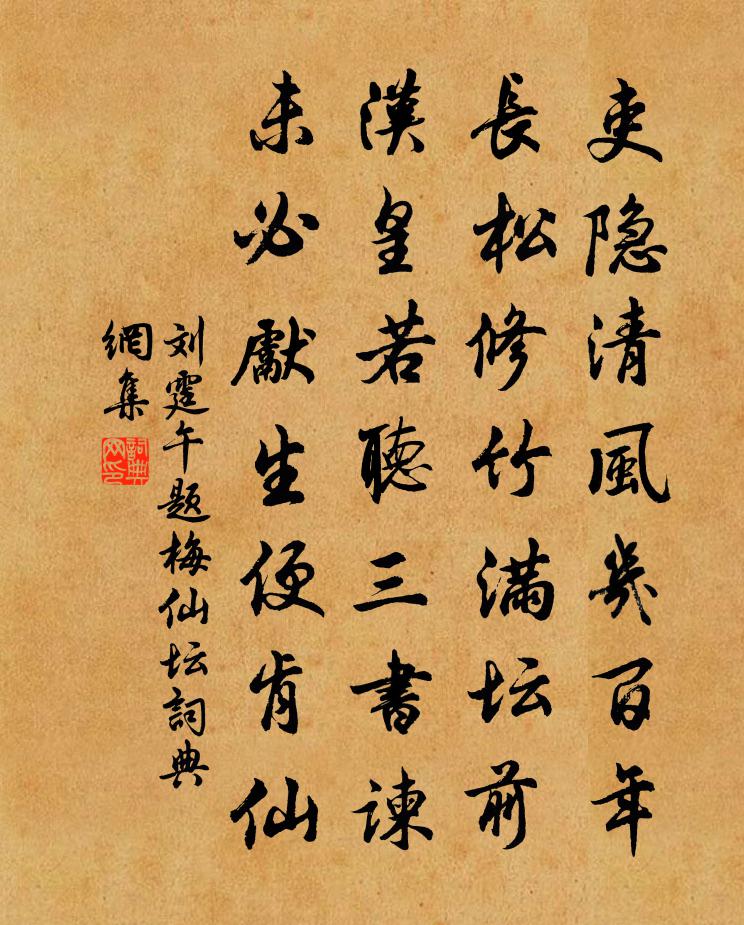 吏隐清風幾百年
長松修竹满坛前
漢皇若聽三書諫
未必獻生便肯仙
刘霆午题梅仙坛詞典
網集
詞典
网印